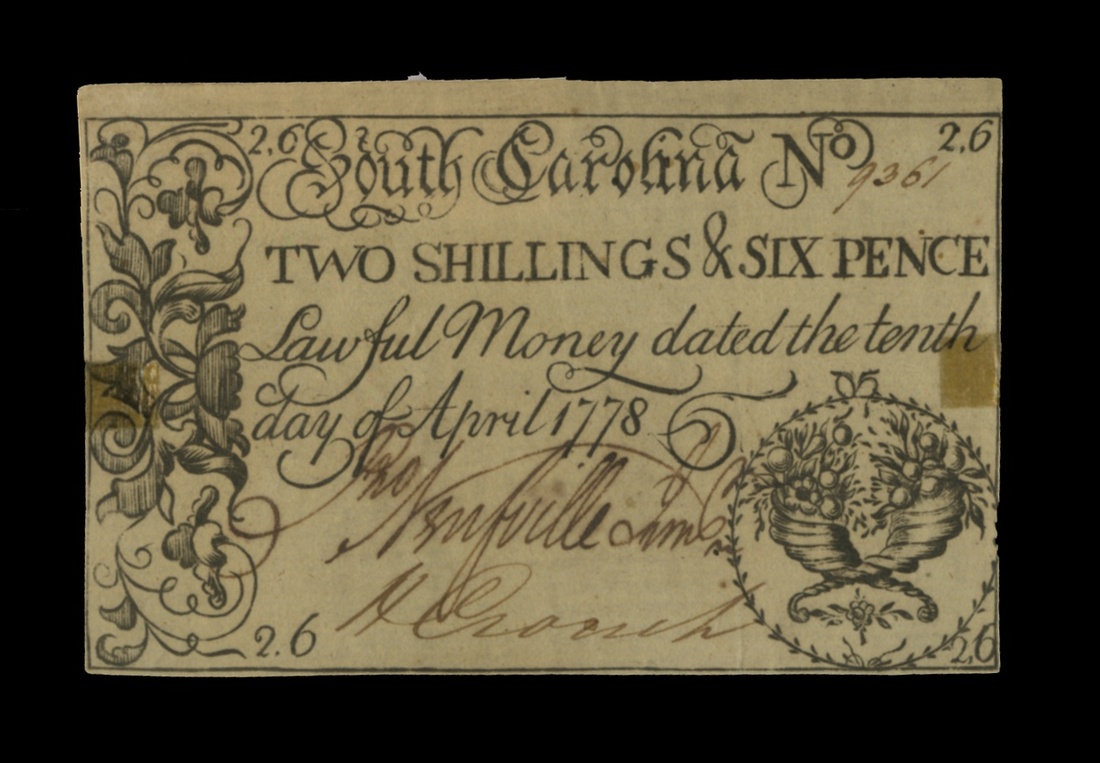 2.6 South Carolina No 9361 2.6
TWO SHILLINGS & SIX PENCE
Lawful Money dated the tenth
day of April 1778
H Crouch
2.6 2.6